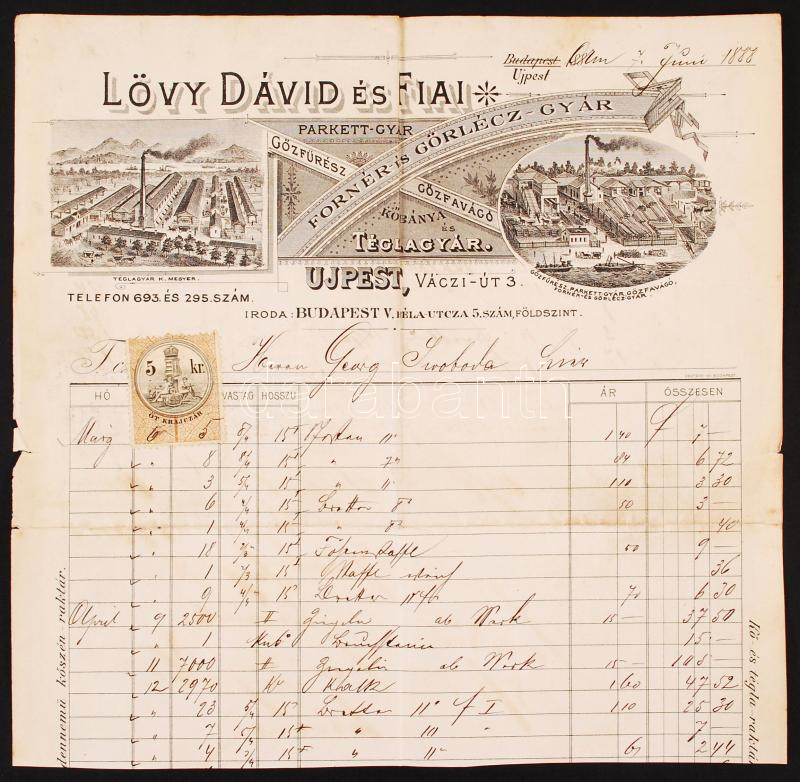 Budapest den 7. Juni 1888
Ujpest
LÖVY DÁVID ÉS FIAI
PARKETT-GYÁR
GŐZFŰRÉSZ
FORNÉR IS GÖRLÉCZ-GYÁR
GŐZFAVÁGÓ
KŐBÁNYA
ÉS
TÉGLAGYÁR.
TÉGLAGYÁR K. MEGYER.
UJPEST, VÁCZI-ÚT 3.
GŐZFŰRÉSZ, PARKETT-GYÁR, GŐZFAVÁGO,
FORNÉR- ÉS GÖRLÉCZ-GYÁR.
TELEFON 693. ÉS 295. SZÁM.
IRODA: BUDAPEST V. BÉLA-UTCZA 5. SZÁM, FÖLDSZINT.
5 kr.
ÖT KRAJCZÁR
Herrn Georg Swoboda hier
HÓ VASTAG HOSSZU ÁR ÖSSZESEN
März 6 5/4 15' Pfosten 11" 1 40 f 7 —
" 8 8/4 15' " 7" 84 6 72
" 3 5/4 15' " 11" 110 3 30
" 6 4/4 15' Bretter 8" 50 3 —
" 1 4/4 15' " 8" 40
" 18 15' 50 9 —
" 1 15' 36
" 9 4/4 15' Bretter 70 6 30
April 9 2500 II Ziegeln ab Werk 15 — 37 50
" 1 Kub° 15 —
11 7000 II Ziegeln ab Werk 15 — 105 —
12 2970 Ko Kalk 1 60 47 52
" 23 5/4 15' Bretter 11" f I 110 25 30
" 7 15' " 10 7 —
" 4 15' " 11" 61 2 44
darabanth
dennemű kőszén raktár.
Kő és tégla-raktár